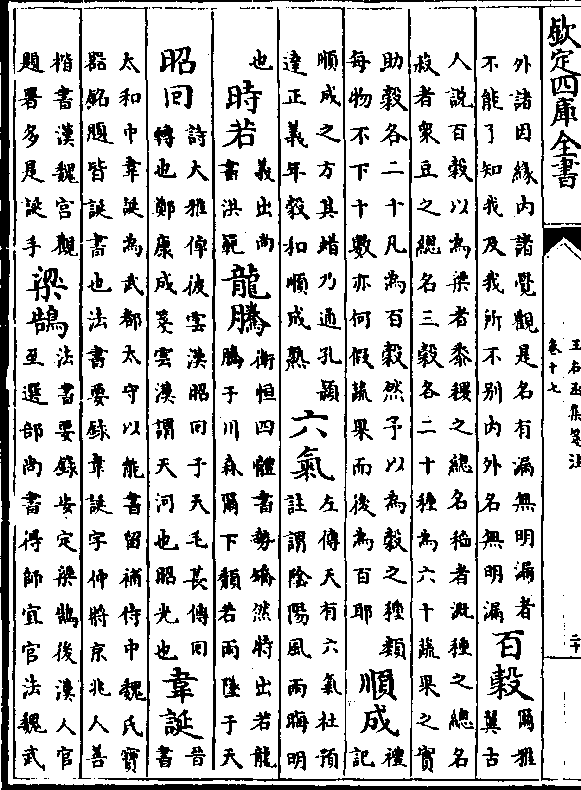 欽定四庫全書
王右丞集箋注
卷十七
二十
外諸因緣內諸覺觀是名有漏無明漏者
不能了知我及我所不別內外名無明漏
百穀
爾雅
翼古
人說百穀以為粱者黍稷之總名稻者溉種之總名
菽者衆豆之總名三穀各二十種為六十蔬果之實
助穀各二十凡為百穀然予以為穀之種類
每物不下十數亦何假蔬果而後為百耶
順成
禮
記
順成之方其蜡乃通孔穎
達正義年穀和順成熟
六氣
左傳天有六氣杜預
註謂陰陽風雨晦明
也
時若
義出尚
書洪範
龍騰
衛恒四體書勢矯然特出若龍
騰于川森爾下頽若雨墜于天
昭回
詩大雅倬彼雲漢昭回于天毛萇傳回
轉也鄭康成箋雲漢謂天河也昭光也
韋誕
晉
書
太和中韋誕為武都太守以能書留補侍中魏氏寶
器銘題皆誕書也法書要錄韋誕字仲將京兆人善
楷書漢魏宮觀
題署多是誕手
梁鵠
法書要錄安定梁鵠後漢人官
至選部尚書得師宜官法魏武